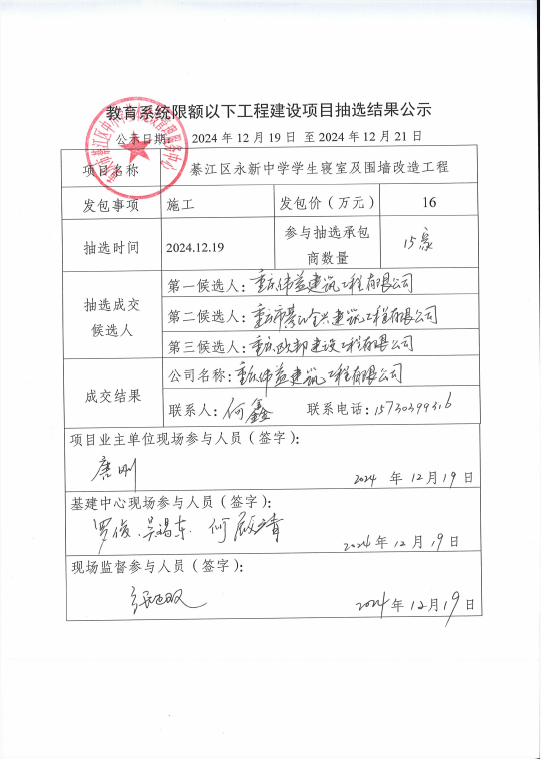 教育系统限额以下工程建设项目抽选结果公示
公示日期： 2024 年 12 月 19 日 至 2024 年 12 月 21 日
项目名称 綦江区永新中学学生寝室及围墙改造工程
发包事项 施工 发包价（万元） 16
抽选时间 2024.12.19 参与抽选承包商数量 15家
抽选成交候选人
第一候选人：重庆伟益建筑工程有限公司
第二候选人：重庆市綦江金兴建筑工程有限公司
第三候选人：重庆欧邦建设工程有限公司
成交结果
公司名称：重庆伟益建筑工程有限公司
联系人：何鑫 联系电话：
项目业主单位现场参与人员（签字）：
唐刚
2024 年 12 月 19 日
基建中心现场参与人员（签字）：
罗俊、吴锡东、何
2024 年 12 月 19 日
现场监督参与人员（签字）：
2024 年 12 月 19 日